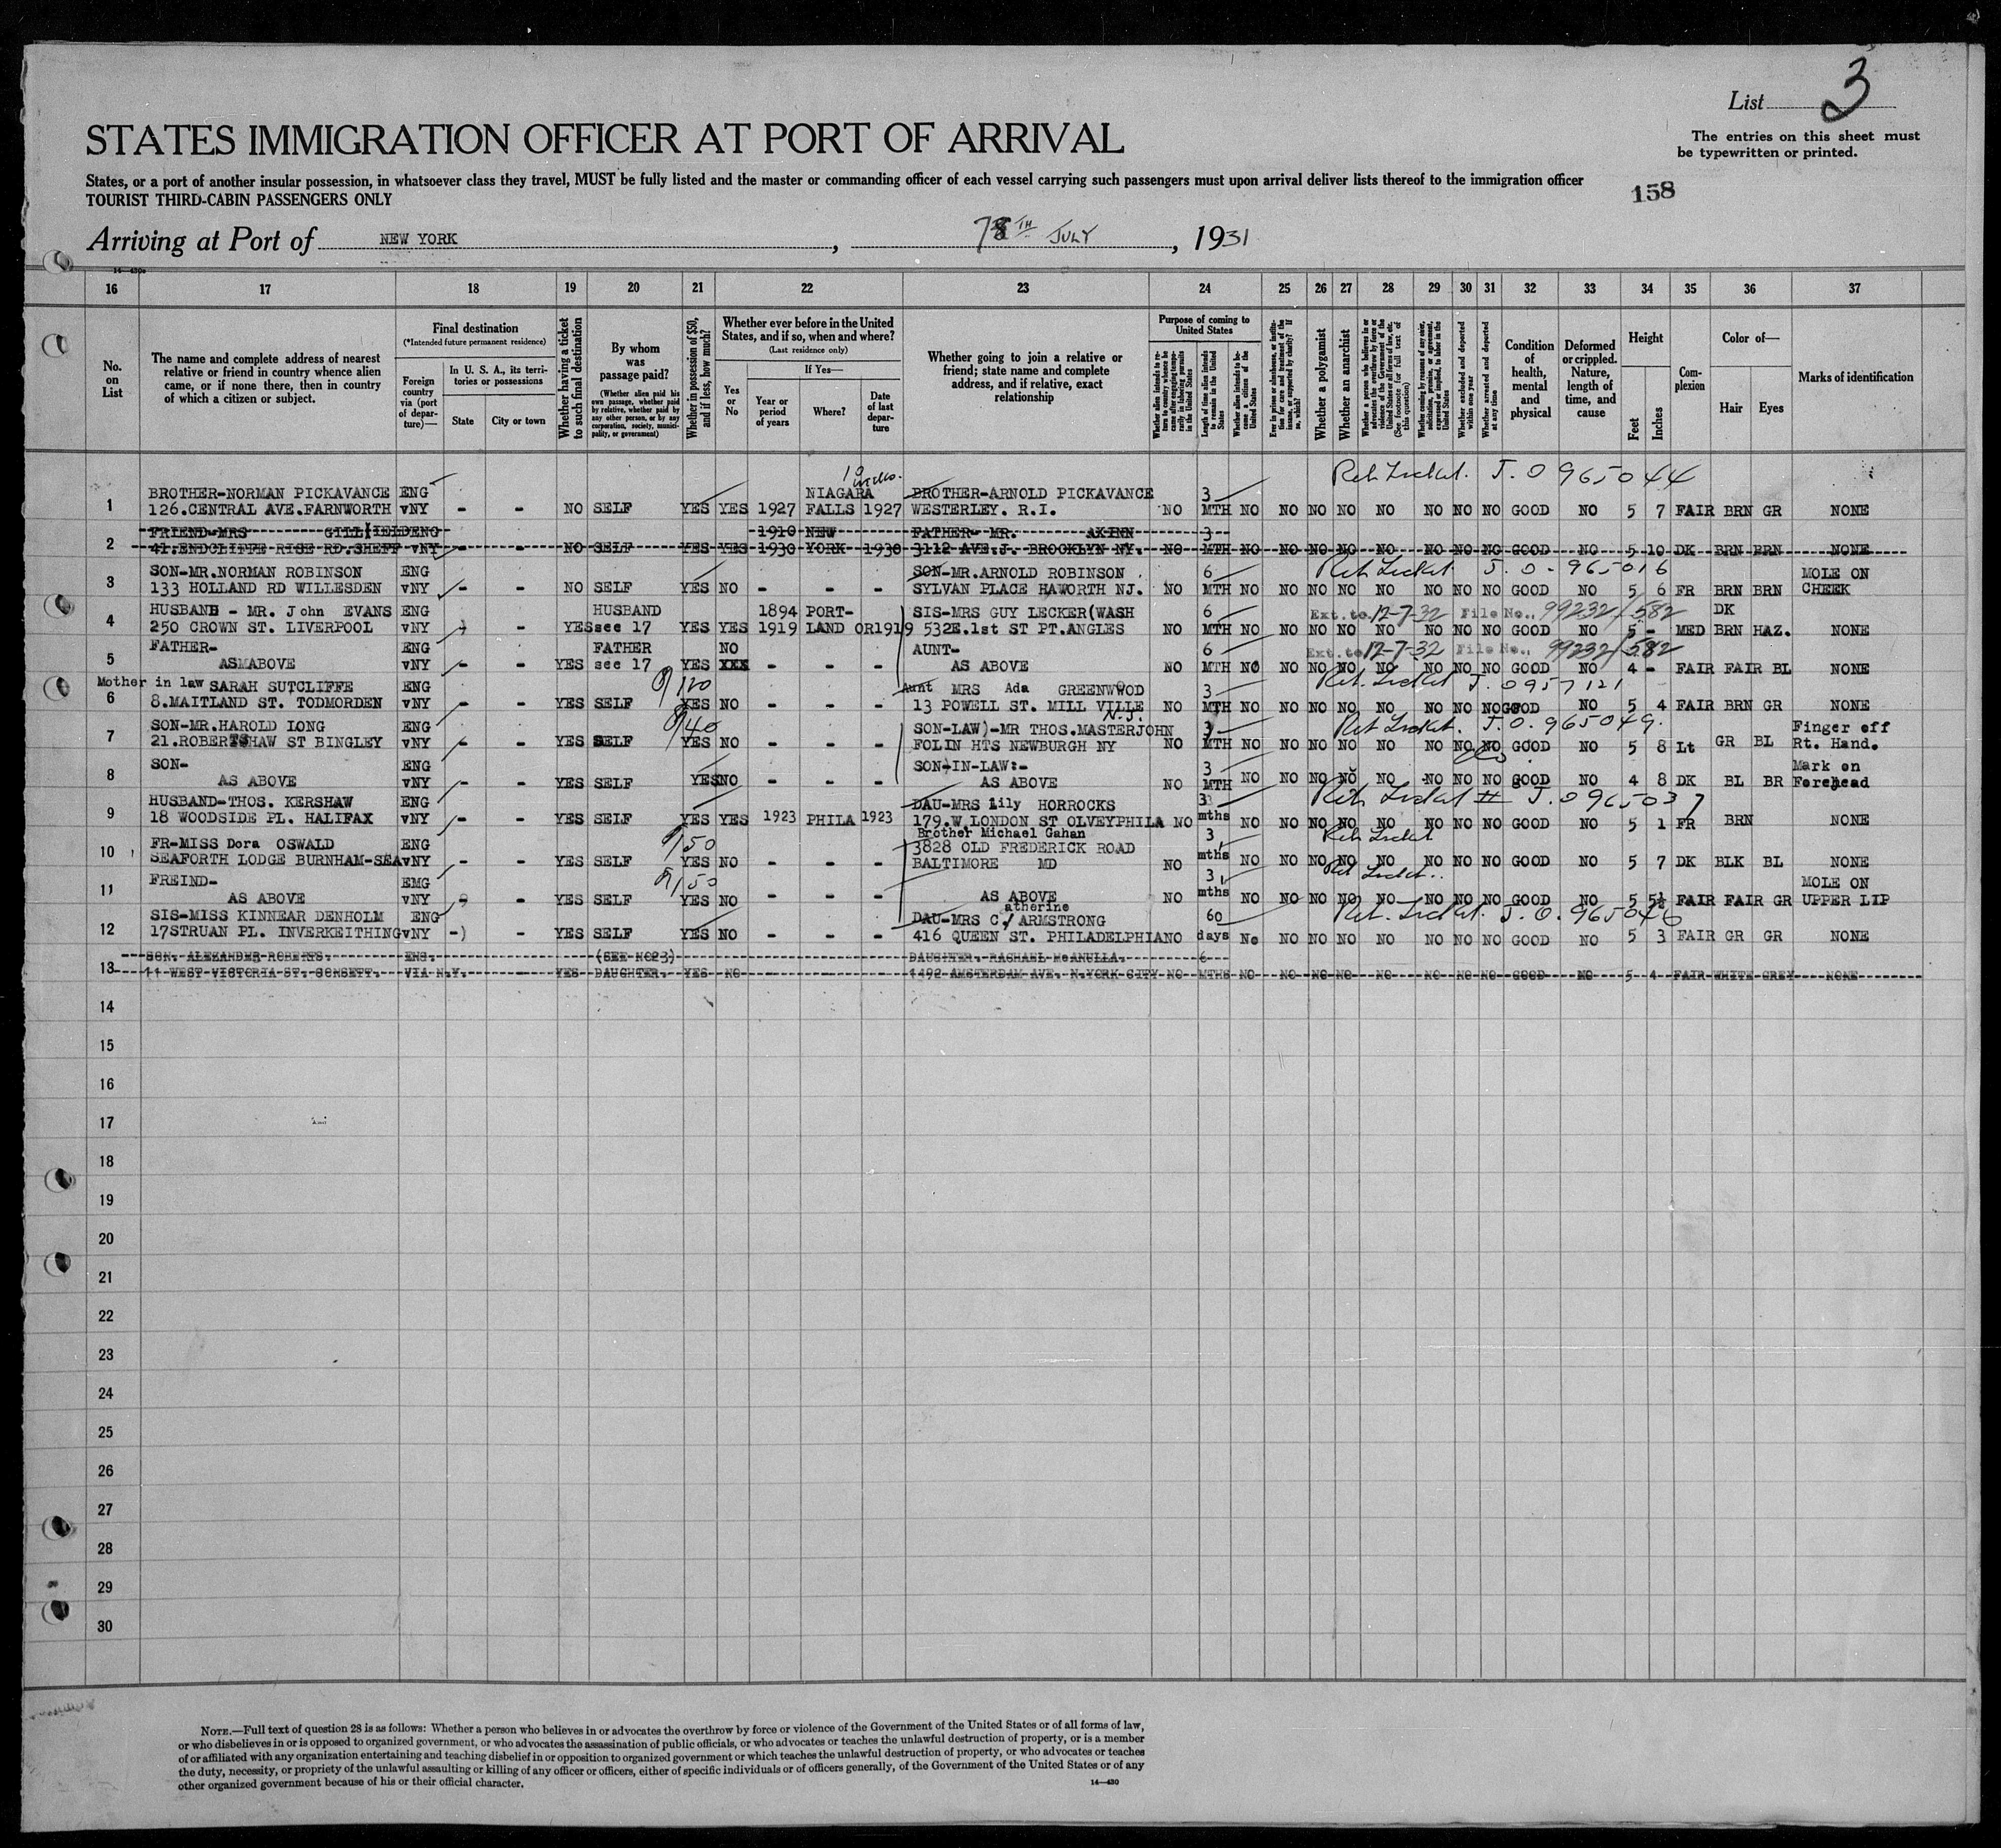 List 3
The entries on this sheet must
be typewritten or printed.
STATES IMMIGRATION OFFICER AT PORT OF ARRIVAL
States, or a port of another insular possession, in whatsoever class they travel, MUST be fully listed and the master or commanding officer of each vessel carrying such passengers must upon arrival deliver lists thereof to the immigration officer
TOURIST THIRD-CABIN PASSENGERS ONLY
158
Arriving at Port of NEW YORK, TH JULY, 1931
16 17 18 19 20 21 22 23 24 25 26 27 28 29 30 31 32 33 34 35 36 37
No. on List
The name and complete address of nearest relative or friend in country whence alien came, or if none there, then in country of which a citizen or subject.
Final destination
(*Intended future permanent residence)
Foreign country via (port of departure)—
In U. S. A., its territories or possessions
State
City or town
Whether having a ticket to such final destination
By whom was passage paid?
(Whether alien paid his own passage, whether paid by relative, whether paid by any other person, or by any corporation, society, municipality, or government)
Whether in possession of $50, and if less, how much?
Whether ever before in the United States, and if so, when and where?
(Last residence only)
Yes or No
If Yes—
Year or period of years
Where?
Date of last departure
Whether going to join a relative or friend; state name and complete address, and if relative, exact relationship
Purpose of coming to United States
Length of time alien intends to remain in the United States
Whether alien intends to become a citizen of the United States
Whether a polygamist
Whether an anarchist
Whether excluded and deported within one year
Whether arrested and deported at any time
Condition of health, mental and physical
Deformed or crippled. Nature, length of time, and cause
Height
Feet
Inches
Complexion
Color of—
Hair
Eyes
Marks of identification
Ret Ticket. J.O 965044
BROTHER-NORMAN PICKAVANCE ENG NIAGARA BROTHER-ARNOLD PICKAVANCE 3
1 126.CENTRAL AVE.FARNWORTH vNY - - NO SELF YES YES 1927 FALLS 1927 WESTERLEY. R.I. NO MTH NO NO NO NO NO NO NO NO GOOD NO 5 7 FAIR BRN GR NONE
FRIEND-MRS ENG 1910 NEW FATHER- MR. AKINN 3
2 41.ENDCLIFFE RISE RD.SHEFF vNY - - NO SELF YES YES 1930 YORK 1930 3112 AVE.J. BROOKLYN NY. NO MTH NO NO NO NO NO NO NO NO GOOD NO 5 10 DK BRN BRN NONE
Ret Ticket J.O-965016
SON-MR.NORMAN ROBINSON ENG SON-MR.ARNOLD ROBINSON 6 MOLE ON
3 133 HOLLAND RD WILLESDEN vNY - - NO SELF YES NO - - - SYLVAN PLACE HAWORTH NJ. NO MTH NO NO NO NO NO NO NO NO GOOD NO 5 6 FR BRN BRN CHEEK
HUSBAND - MR. John EVANS ENG HUSBAND 1894 PORT- SIS-MRS GUY LECKER(WASH 6 Ext. to 12-7-32 File No. 99232/582 DK
4 250 CROWN ST. LIVERPOOL vNY - YES see 17 YES YES 1919 LAND OR 1919 532E.1st ST PT.ANGLES NO MTH NO NO NO NO NO NO NO NO GOOD NO 5 - MED BRN HAZ. NONE
FATHER- ENG FATHER NO AUNT- 6 Ext. to 12-7-32 File No. 99232/582
5 AS ABOVE vNY - - YES see 17 YES XXX - - - AS ABOVE NO MTH NO NO NO NO NO NO NO NO GOOD NO 4 - FAIR FAIR BL NONE
Mother in law SARAH SUTCLIFFE ENG 120 Aunt MRS Ada GREENWWOD 3 Ret. Ticket J.0957121
6 8.MAITLAND ST. TODMORDEN vNY - - YES SELF YES NO - - - 13 POWELL ST. MILL VILLE N.J. NO MTH NO NO NO NO NO NO NO NO GOOD NO 5 4 FAIR BRN GR NONE
SON-MR.HAROLD LONG ENG 40 SON-LAW)-MR THOS.MASTERJOHN 3 Ret Ticket. J.O.965049. Finger off
7 21.ROBERTSHAW ST BINGLEY vNY - - YES SELF YES NO - - - FOLIN HTS NEWBURGH NY NO MTH NO NO NO NO NO NO NO NO GOOD NO 5 8 Lt GR BL Rt. Hand.
SON- ENG SON-IN-LAW:- 3 Mark on
8 AS ABOVE vNY - - YES SELF YES NO - - - AS ABOVE NO MTH NO NO NO NO NO NO NO NO GOOD NO 4 8 DK BL BR Forehead
HUSBAND-THOS. KERSHAW ENG DAU-MRS Lily HORROCKS 3 Ret Ticket J.0965037
9 18 WOODSIDE PL. HALIFAX vNY - - YES SELF YES YES 1923 PHILA 1923 179.W.LONDON ST OLVEYPHILA NO mths NO NO NO NO NO NO NO NO GOOD NO 5 1 FR BRN NONE
Brother Michael Gahan
FR-MISS Dora OSWALD ENG 50 3828 OLD FREDERICK ROAD 3 Ret Ticket
10 SEAFORTH LODGE BURNHAM-SEA vNY - - YES SELF YES NO - - - BALTIMORE MD NO mths NO NO NO NO NO NO NO NO GOOD NO 5 7 DK BLK BL NONE
FREIND- EMG 50 3 Ret Ticket.. MOLE ON
11 AS ABOVE vNY - YES SELF YES NO - - - AS ABOVE NO mths NO NO NO NO NO NO NO NO GOOD NO 5 5½ FAIR FAIR GR UPPER LIP
SIS-MISS KINNEAR DENHOLM ENG DAU-MRS C/atherine ARMSTRONG 60 Ret. Ticket. J.O.965046
12 17STRUAN PL. INVERKEITHING vNY - - YES SELF YES NO - - - 416 QUEEN ST. PHILADELPHIA NO days No NO NO NO NO NO NO NO GOOD NO 5 3 FAIR GR GR NONE
SON. ALEXANDER ROBERTS. ENG. (SEE NO23) DAUGHTER. RACHAEL McANULLA. 6
13 11 WEST VICTORIA ST. CONSETT. VIA N.Y. - YES DAUGHTER. YES NO 1492 AMSTERDAM AVE. N.YORK CITY NO MTHS NO NO NO NO NO NO NO NO GOOD NO 5 4 FAIR WHITE GREY NONE
14
15
16
17
18
19
20
21
22
23
24
25
26
27
28
29
30
NOTE.—Full text of question 28 is as follows: Whether a person who believes in or advocates the overthrow by force or violence of the Government of the United States or of all forms of law,
or who disbelieves in or is opposed to organized government, or who advocates the assassination of public officials, or who advocates or teaches the unlawful destruction of property, or is a member
of or affiliated with any organization entertaining and teaching disbelief in or opposition to organized government or which teaches the unlawful destruction of property, or who advocates or teaches
the duty, necessity, or propriety of the unlawful assaulting or killing of any officer or officers, either of specific individuals or of officers generally, of the Government of the United States or of any
other organized government because of his or their official character.
14—430